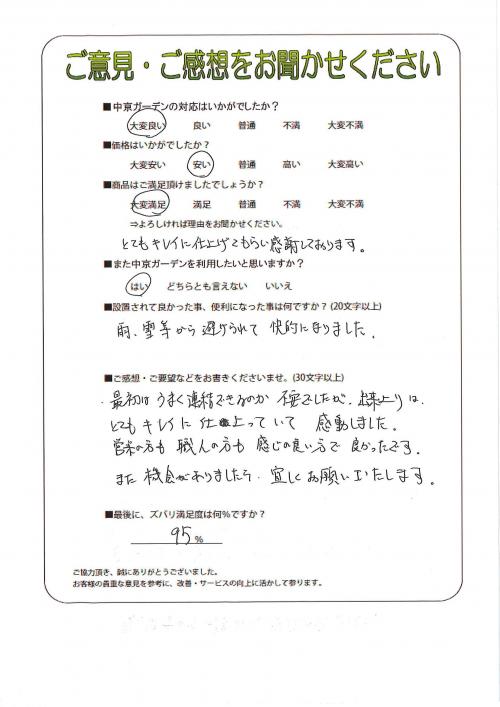 ご意見・ご感想をお聞かせください
■中京ガーデンの対応はいかがでしたか？
大変良い 良い 普通 不満 大変不満
■価格はいかがでしたか？
大変安い 安い 普通 高い 大変高い
■商品はご満足頂けましたでしょうか？
大変満足 満足 普通 不満 大変不満
⇒よろしければ理由をお聞かせください。
とてもキレイに仕上げてもらい感謝しております。
■また中京ガーデンを利用したいと思いますか？
はい どちらとも言えない いいえ
■設置されて良かった事、便利になった事は何ですか？(20文字以上)
雨、雪等から避けられて 快的になりました。
■ご感想・ご要望などをお書きくださいませ。(30文字以上)
・最初は うまく連結できるのか 不安でしたが、出来上りは、
とてもキレイに仕上っていて 感動しました。
営業の方も 職人の方も 感じの良い方で 良かったです。
また 機会がありましたら、宜しくお願いいたします。
■最後に、ズバリ満足度は何%ですか？
95 %
ご協力頂き、誠にありがとうございました。
お客様の貴重な意見を参考に、改善・サービスの向上に活かして参ります。